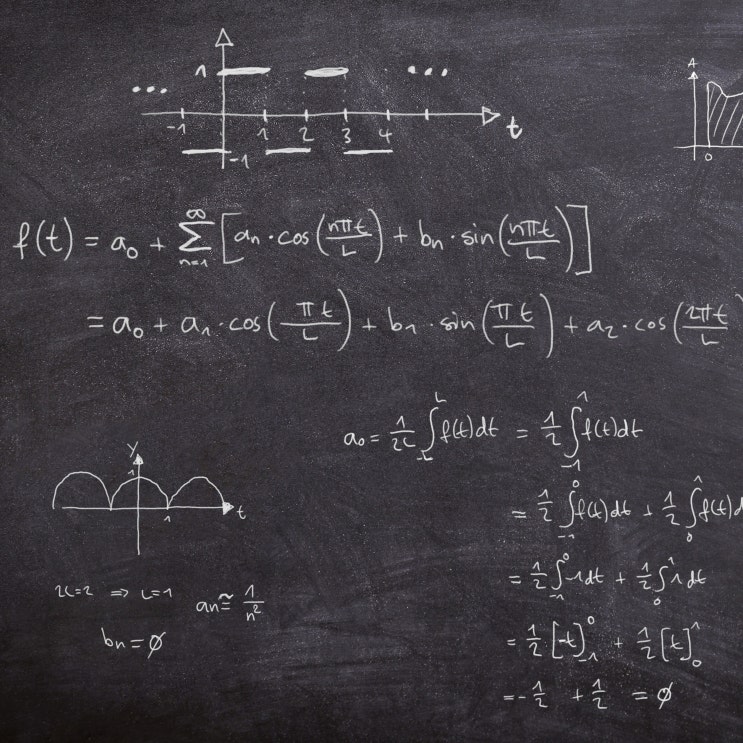 1
... ...
-1 1 2 3 4 t
-1
A
0
f(t) = a₀ + ∞∑n=1 [aₙ · cos(nπt/L) + bₙ · sin(nπt/L)]
= a₀ + a₁ · cos(πt/L) + b₁ · sin(πt/L) + a₂ · cos(2πt/L)
a₀ = 1/2L ∫-L^L f(t)dt = 1/2 ∫-1^1 f(t)dt
= 1/2 ∫-1^0 f(t)dt + 1/2 ∫0^1 f(t)d
= 1/2 ∫-1^0 1dt + 1/2 ∫0^1 1dt
= 1/2 [-t]-1^0 + 1/2 [t]0^1
= -1/2 + 1/2 = ∅
y
1
1 t
2L=2 ⇒ L=1 aₙ ≅ 1/n²
bₙ = ∅